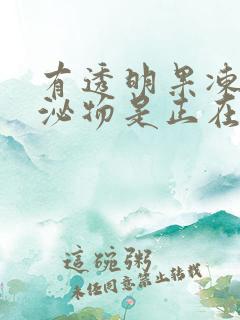 有透明果凍
泌物是正在
這碗粥
未经同意禁止转载